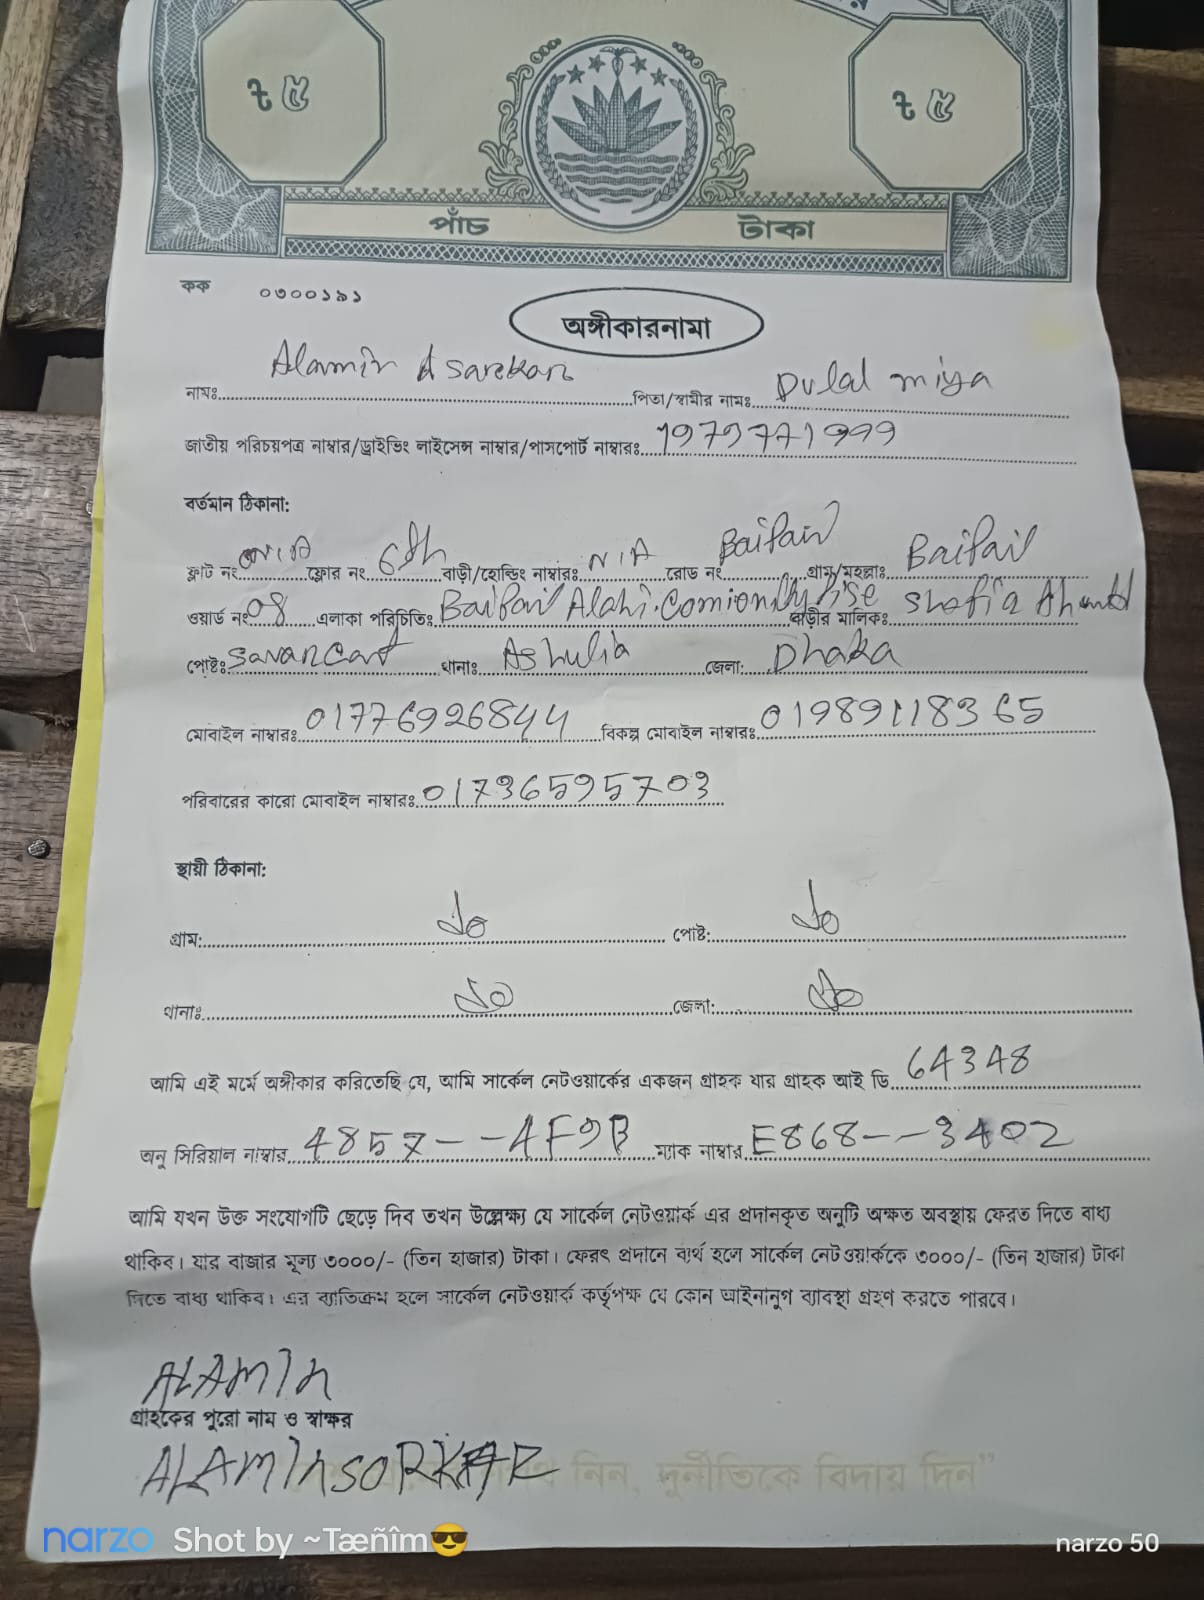 ৳ ৫ ৳ ৫
পাঁচ টাকা
কক ০৩০০১৯১
অঙ্গীকারনামা
নামঃ Alamin Sarekar পিতা/স্বামীর নামঃ Dulal miya
জাতীয় পরিচয়পত্র নাম্বার/ড্রাইভিং লাইসেন্স নাম্বার/পাসপোর্ট নাম্বারঃ
বর্তমান ঠিকানা:
ফ্লাট নং N/A ফ্লোর নং 6th বাড়ী/হোল্ডিং নাম্বারঃ N/A রোড নং Baipail গ্রাম/মহল্লাঃ Baipail
ওয়ার্ড নংঃ 08 এলাকা পরিচিতিঃ Baipail Alahi Comionity বাড়ীর মালিকঃ Shofiq
পোষ্টঃ Savar Cant থানাঃ Ashulia জেলা: Dhaka
মোবাইল নাম্বারঃ 01776926844 বিকল্প মোবাইল নাম্বারঃ 01989118365
পরিবারের কারো মোবাইল নাম্বারঃ 01736595703
স্থায়ী ঠিকানা:
গ্রাম: Do পোষ্ট: Do
থানাঃ Do জেলা: Do
আমি এই মর্মে অঙ্গীকার করিতেছি যে, আমি সার্কেল নেটওয়ার্কের একজন গ্রাহক যার গ্রাহক আই ডি 64348
অনু সিরিয়াল নাম্বার 4857--4F9B ম্যাক নাম্বার E868--3402
আমি যখন উক্ত সংযোগটি ছেড়ে দিব তখন উল্লেক্ষ্য যে সার্কেল নেটওয়ার্ক এর প্রদানকৃত অনুটি অক্ষত অবস্থায় ফেরত দিতে বাধ্য
থাকিব। যার বাজার মূল্য ৩০০০/- (তিন হাজার) টাকা। ফেরৎ প্রদানে ব্যর্থ হলে সার্কেল নেটওয়ার্ককে ৩০০০/- (তিন হাজার) টাকা
দিতে বাধ্য থাকিব। এর ব্যতিক্রম হলে সার্কেল নেটওয়ার্ক কর্তৃপক্ষ যে কোন আইনানুগ ব্যাবস্থা গ্রহণ করতে পারবে।
ALAMIn
গ্রাহকের পুরো নাম ও স্বাক্ষর
ALAMInSORKAR নিন, দুর্নীতিকে বিদায় দিন"
narzo Shot by ~Tæñîm😎 narzo 50